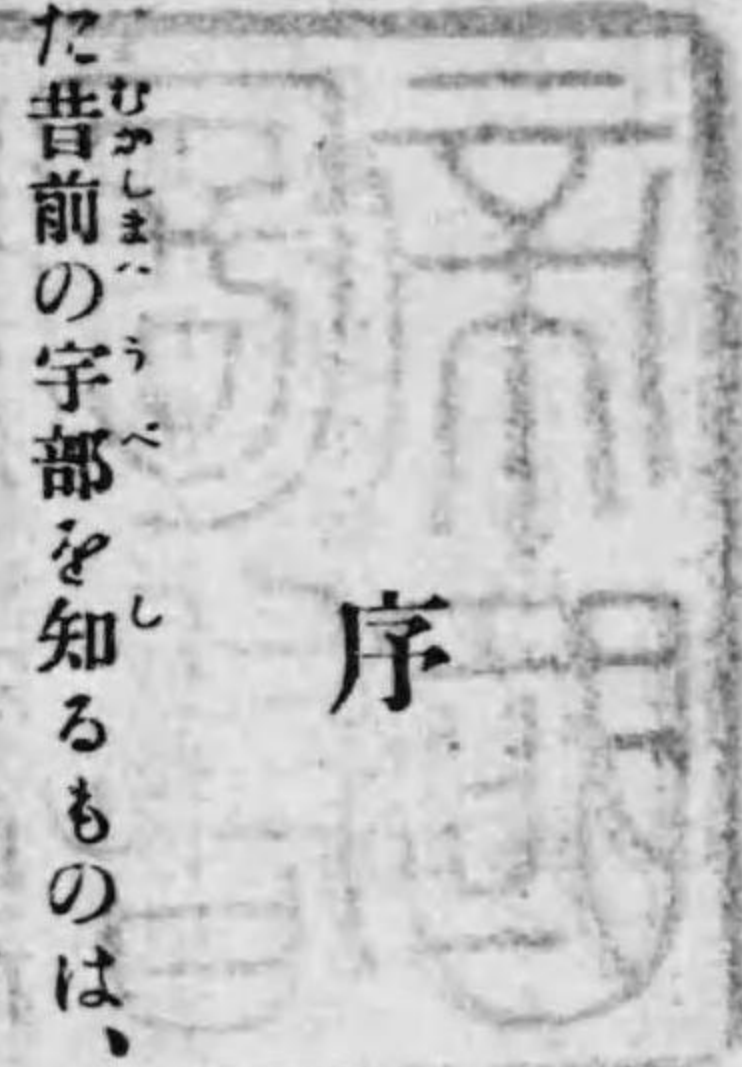 序
た昔前の宇部を知るものは、